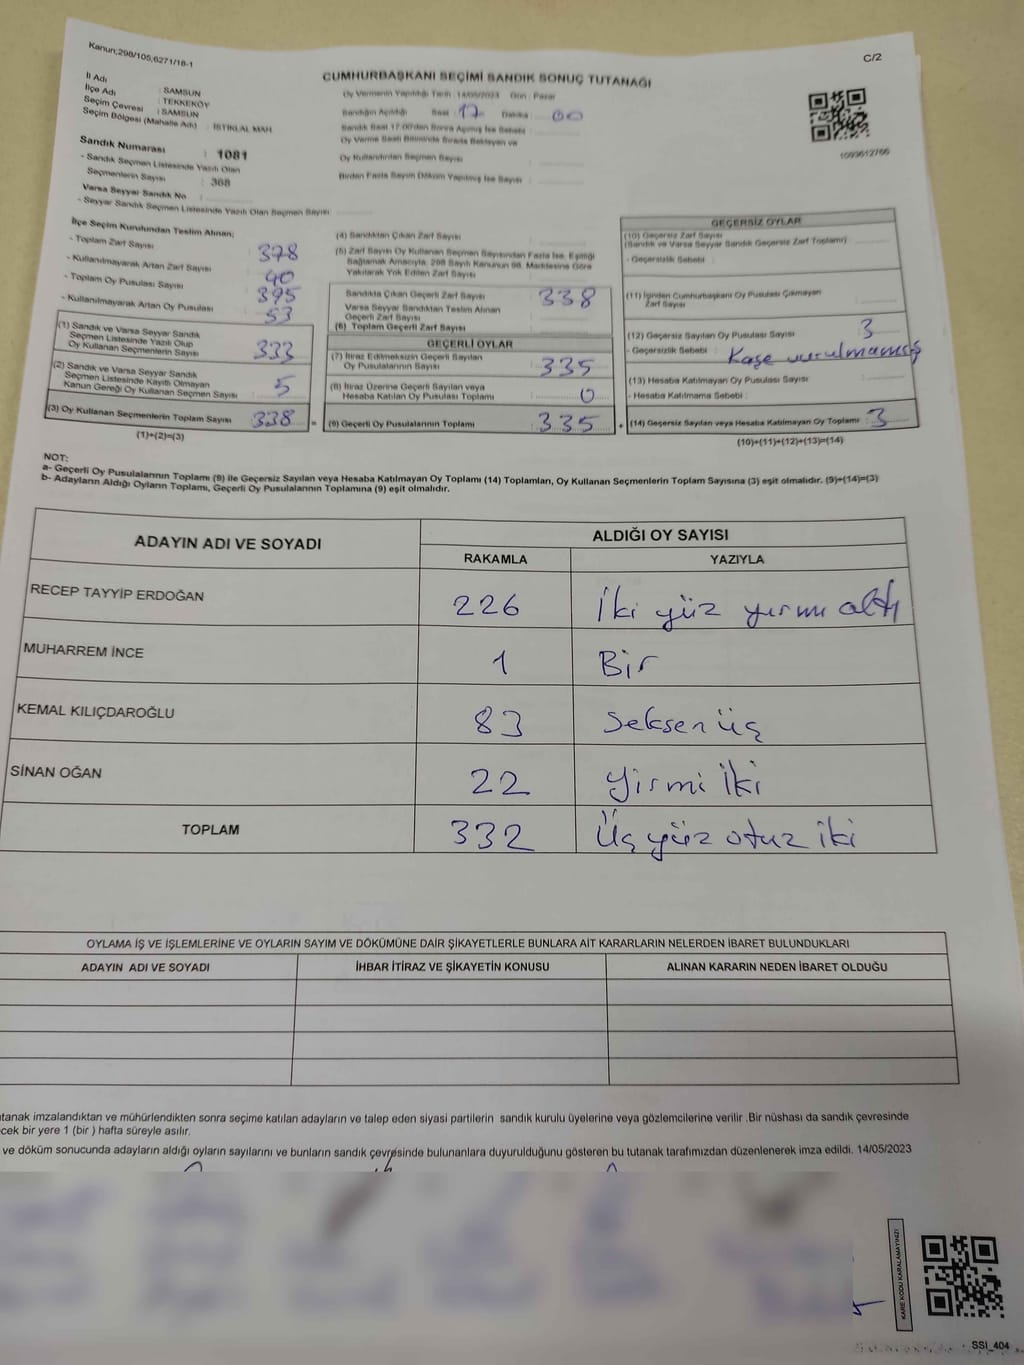 Kanun;298/105,6271/18-1
C/2
CUMHURBAŞKANI SEÇİMİ SANDIK SONUÇ TUTANAĞI
İl Adı : SAMSUN
İlçe Adı : TEKKEKÖY
Seçim Çevresi : SAMSUN
Seçim Bölgesi (Mahalle Adı) : İSTİKLAL MAH.
Sandık Numarası : 1081
- Sandık Seçmen Listesinde Yazılı Olan
Seçmenlerin Sayısı : 368
Varsa Seyyar Sandık No :
- Seyyar Sandık Seçmen Listesinde Yazılı Olan Seçmen Sayısı
Oy Vermenin Yapıldığı Tarih : 14/05/2023 Gün : Pazar
Sandığın Açıldığı Saat : 17 Dakika : 00
Sandık Saat 17:00'den Sonra Açılmış İse Sebebi :
Oy Verme Saati Bitiminde Sırada Bekleyen ve
Oy Kullandırılan Seçmen Sayısı :
Birden Fazla Sayım Döküm Yapılmış İse Sayısı :
1093612766
İlçe Seçim Kurulundan Teslim Alınan;
- Toplam Zarf Sayısı : 378
- Kullanılmayarak Artan Zarf Sayısı : 40
- Toplam Oy Pusulası Sayısı : 395
- Kullanılmayarak Artan Oy Pusulası : 53
(1) Sandık ve Varsa Seyyar Sandık
Seçmen Listesinde Yazılı Olup
Oy Kullanan Seçmenlerin Sayısı : 333
(2) Sandık ve Varsa Seyyar Sandık
Seçmen Listesinde Kayıtlı Olmayan
Kanun Gereği Oy Kullanan Seçmen Sayısı : 5
(3) Oy Kullanan Seçmenlerin Toplam Sayısı : 338 =
(1)+(2)=(3)
(4) Sandıktan Çıkan Zarf Sayısı :
(5) Zarf Sayısı Oy Kullanan Seçmen Sayısından Fazla İse, Eşitliği
Sağlamak Amacıyla, 298 Sayılı Kanunun 98. Maddesine Göre
Yakılarak Yok Edilen Zarf Sayısı :
Sandıkta Çıkan Geçerli Zarf Sayısı : 338
Varsa Seyyar Sandıktan Teslim Alınan
Geçerli Zarf Sayısı :
(6) Toplam Geçerli Zarf Sayısı :
GEÇERLİ OYLAR
(7) İtiraz Edilmeksizin Geçerli Sayılan
Oy Pusulalarının Sayısı : 335
(8) İtiraz Üzerine Geçerli Sayılan veya
Hesaba Katılan Oy Pusulası Toplamı : 0
(9) Geçerli Oy Pusulalarının Toplamı : 335 +
GEÇERSİZ OYLAR
(10) Geçersiz Zarf Sayısı
(Sandık ve Varsa Seyyar Sandık Geçersiz Zarf Toplamı) :
- Geçersizlik Sebebi :
(11) İçinden Cumhurbaşkanı Oy Pusulası Çıkmayan
Zarf Sayısı :
(12) Geçersiz Sayılan Oy Pusulası Sayısı : 3
- Geçersizlik Sebebi : Kaşe vurulmamış
(13) Hesaba Katılmayan Oy Pusulası Sayısı :
- Hesaba Katılmama Sebebi :
(14) Geçersiz Sayılan veya Hesaba Katılmayan Oy Toplamı : 3
(10)+(11)+(12)+(13)=(14)
NOT:
a- Geçerli Oy Pusulalarının Toplamı (9) ile Geçersiz Sayılan veya Hesaba Katılmayan Oy Toplamı (14) Toplamları, Oy Kullanan Seçmenlerin Toplam Sayısına (3) eşit olmalıdır. (9)+(14)=(3)
b- Adayların Aldığı Oyların Toplamı, Geçerli Oy Pusulalarının Toplamına (9) eşit olmalıdır.
ADAYIN ADI VE SOYADI
ALDIĞI OY SAYISI
RAKAMLA YAZIYLA
RECEP TAYYİP ERDOĞAN 226 İki yüz yirmi altı
MUHARREM İNCE 1 Bir
KEMAL KILIÇDAROĞLU 83 Seksen üç
SİNAN OĞAN 22 Yirmi İki
TOPLAM 332 Üç yüz otuz iki
OYLAMA İŞ VE İŞLEMLERİNE VE OYLARIN SAYIM VE DÖKÜMÜNE DAİR ŞİKAYETLERLE BUNLARA AİT KARARLARIN NELERDEN İBARET BULUNDUKLARI
ADAYIN ADI VE SOYADI İHBAR İTİRAZ VE ŞİKAYETİN KONUSU ALINAN KARARIN NEDEN İBARET OLDUĞU
utanak imzalandıktan ve mühürlendikten sonra seçime katılan adayların ve talep eden siyasi partilerin sandık kurulu üyelerine veya gözlemcilerine verilir .Bir nüshası da sandık çevresinde
cek bir yere 1 (bir ) hafta süreyle asılır.
ve döküm sonucunda adayların aldığı oyların sayılarını ve bunların sandık çevresinde bulunanlara duyurulduğunu gösteren bu tutanak tarafımızdan düzenlenerek imza edildi. 14/05/2023
KARE KODU KARALAMAYINIZ!
SSI_404